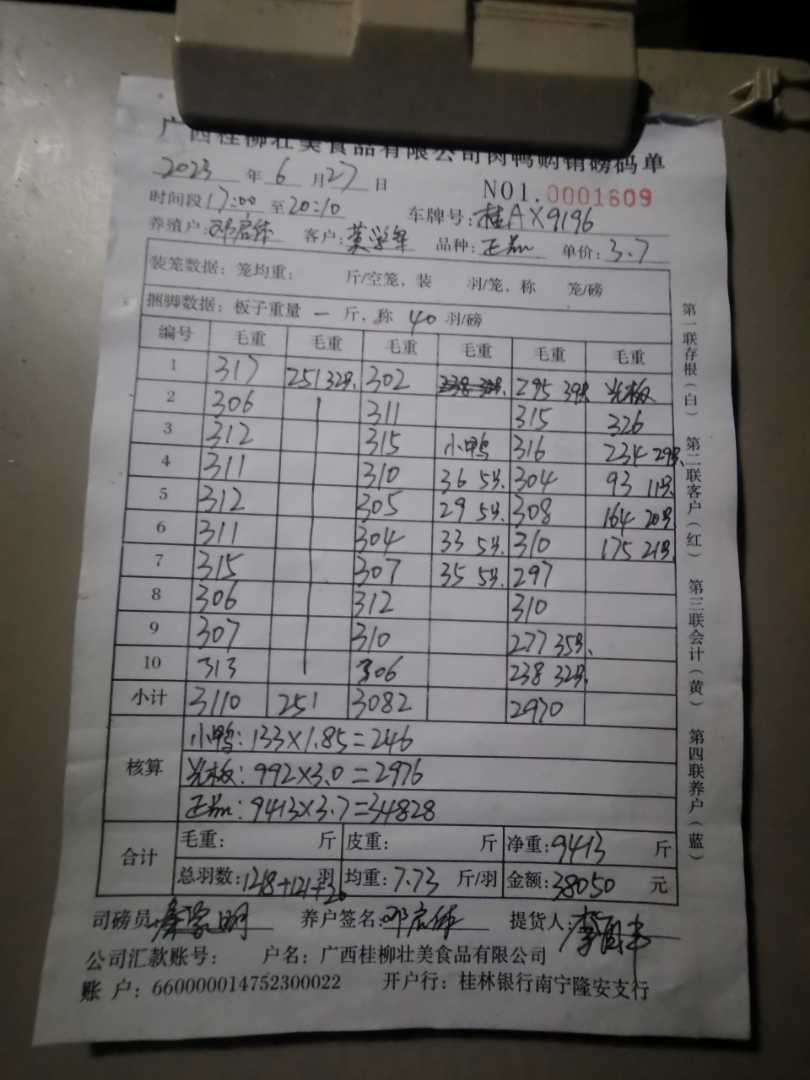 广西桂柳壮美食品有限公司肉鸭购销磅码单
2023 年 6 月 27 日 NO1.0001609
时间段 17:00 至 20:10 车牌号: 桂AX9196
养殖户: 邓启体 客户: 莫学军 品种: 正 单价: 3.7
装笼数据: 笼均重: 斤/空笼、装 羽/笼, 称 笼/磅
捆脚数据: 板子重量 一 斤, 称 40 羽/磅
编号 毛重 毛重 毛重 毛重 毛重 毛重
1 317 251 32只 302 295 39只 光板
2 306 311 315 326
3 312 315 小鸭 316 234 29只
4 311 310 36 5只 304 93 11只
5 312 305 29 5只 308 164 20只
6 311 304 33 5只 310 175 21只
7 315 307 35 5只 297
8 306 312 310
9 307 310 277 35只
10 313 306 238 32只
小计 3110 251 3082 2970
核算 小鸭: 133×1.85=246
光板: 992×3.0=2976
正: 9413×3.7=34828
合计 毛重: 斤 皮重: 斤 净重: 9413 斤
总羽数: 1218+121+20 羽 均重: 7.73 斤/羽 金额: 38050 元
司磅员: 养户签名: 邓启体 提货人: 李
公司汇款账号: 户名: 广西桂柳壮美食品有限公司
账 户: 660000014752300022 开户行: 桂林银行南宁隆安支行
第一联存根(白) 第二联客户(红) 第三联会计(黄) 第四联养户(蓝)